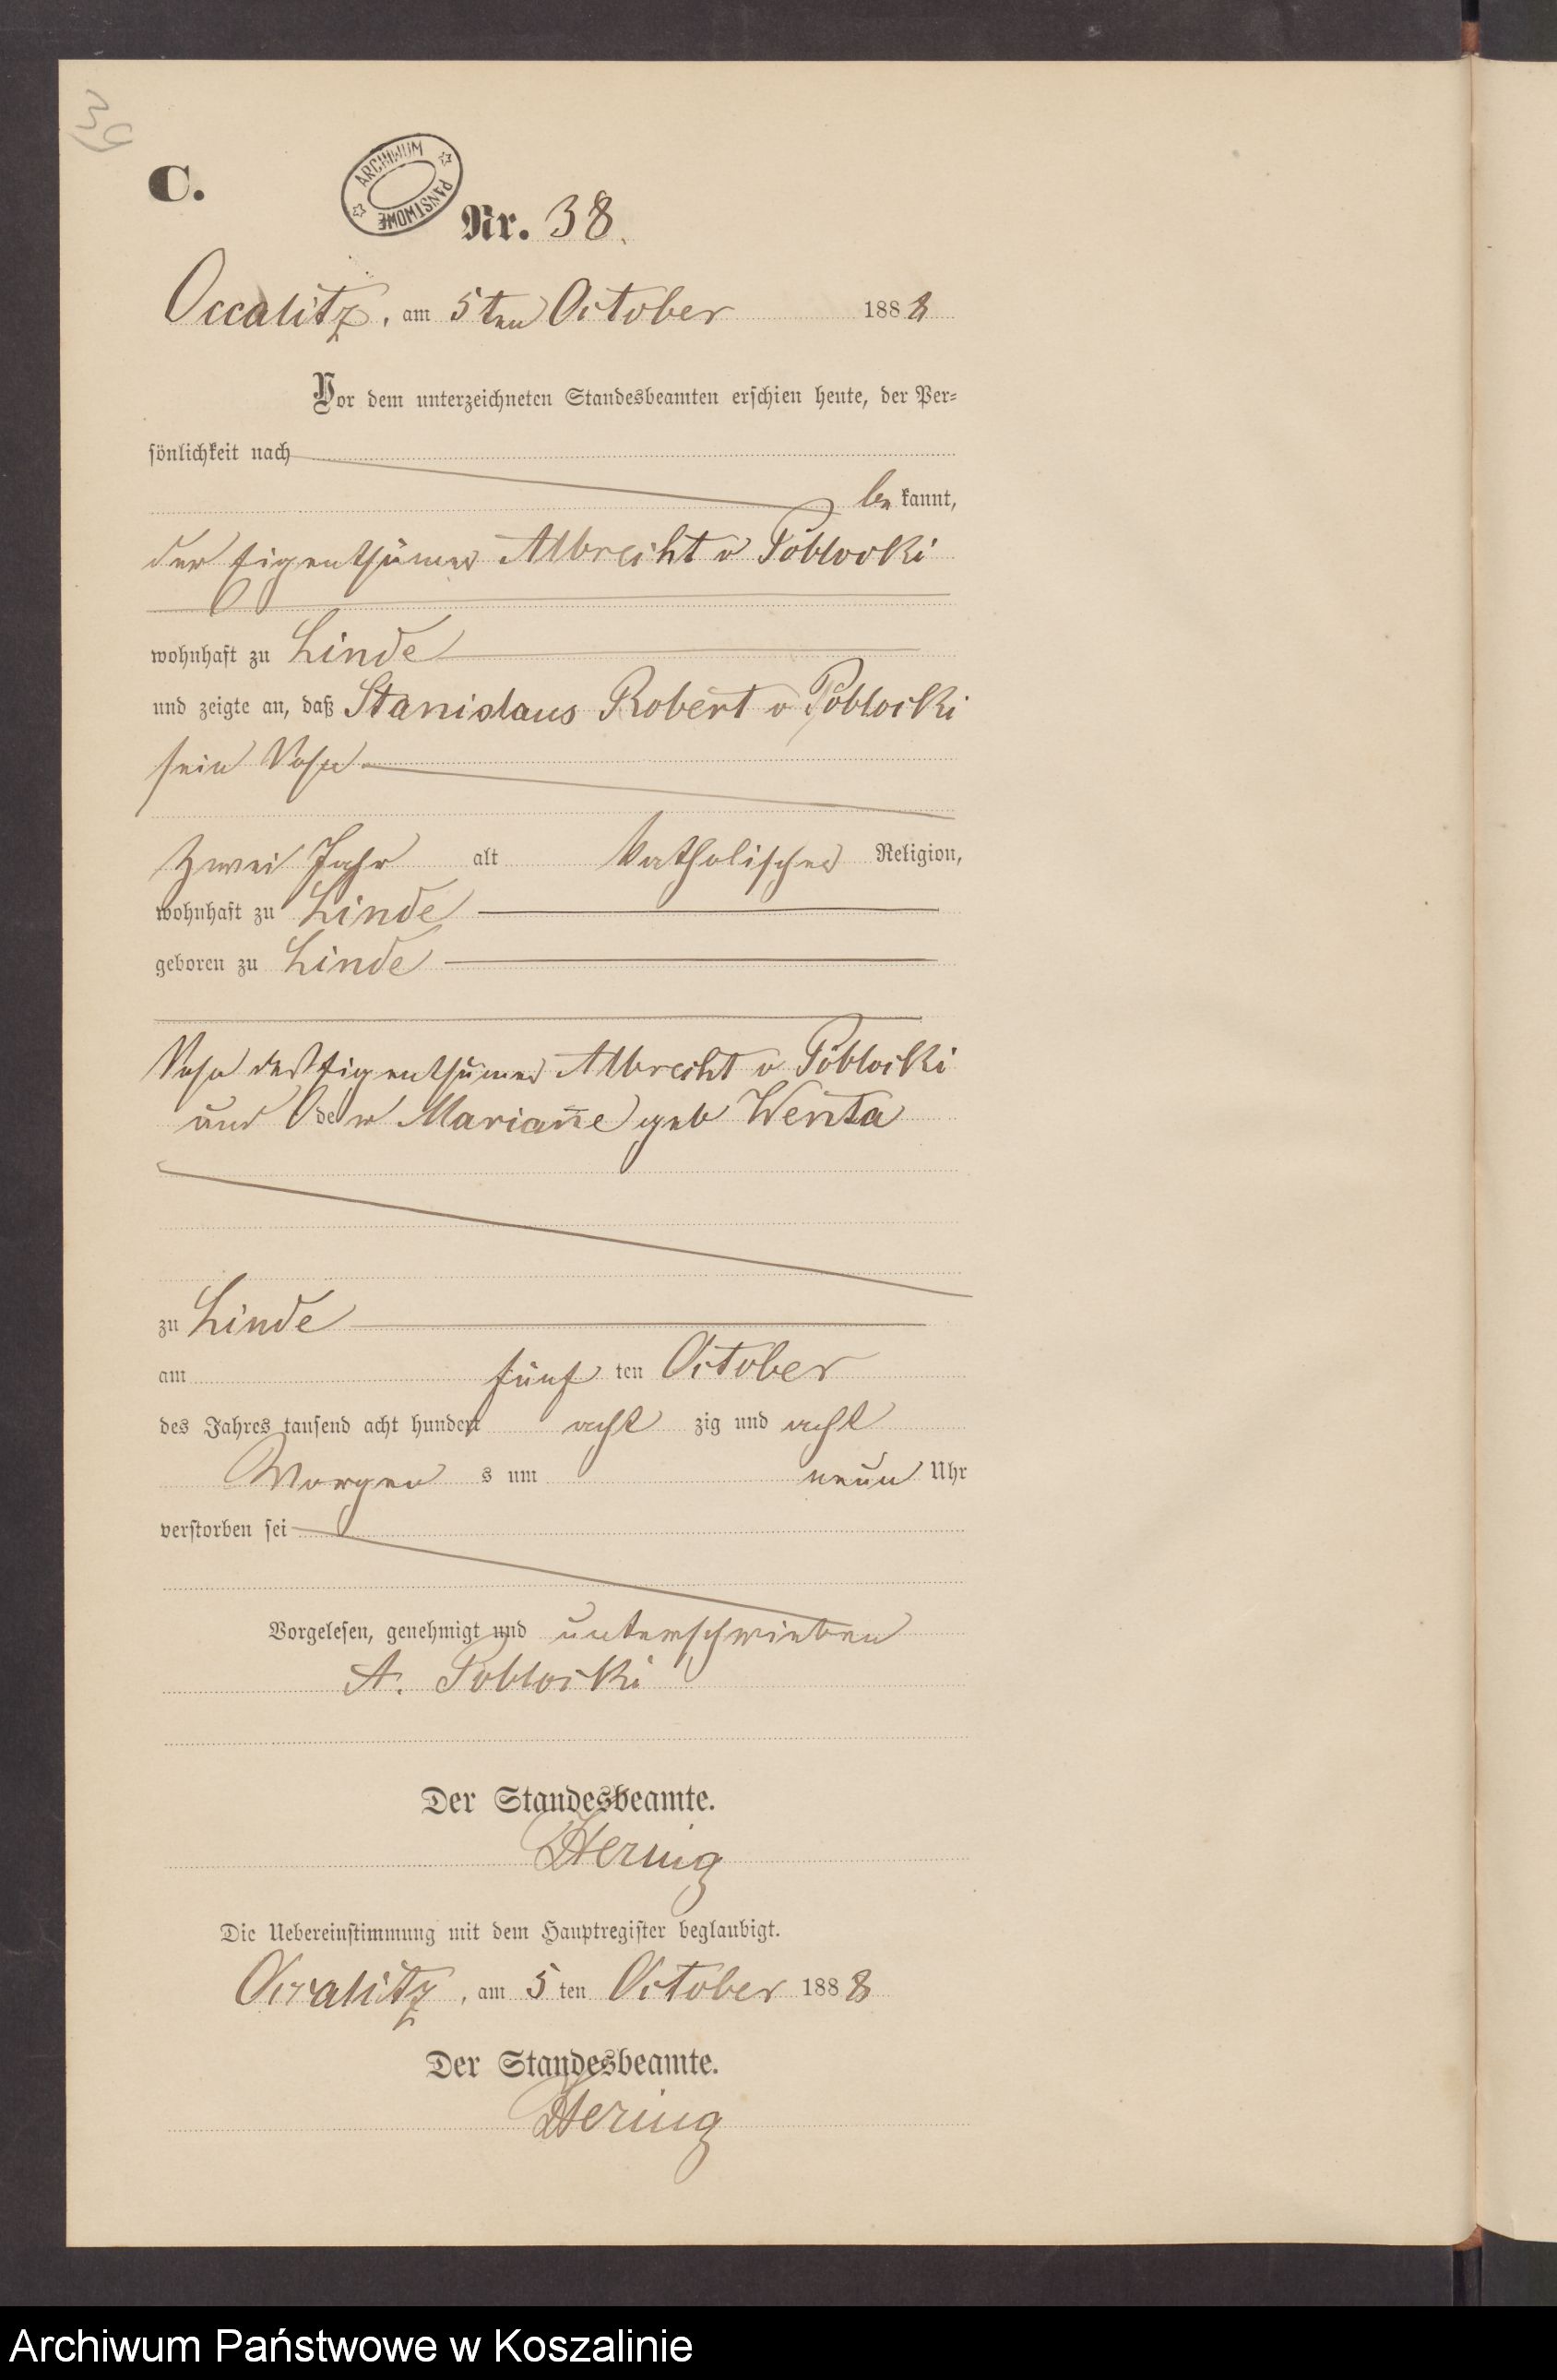 39
C.
ARCHIWUM PAŃSTWOWE
Nr. 38.
Occalitz, am 5ten October 1888
Vor dem unterzeichneten Standesbeamten erschien heute, der Per-
sönlichkeit nach
be kannt,
der Eigenthümer Albrecht v Pobłocki
wohnhaft zu Linde
und zeigte an, daß Stanislaus Robert v Pobłocki
sein Sohn
zwei Jahr alt katholischer Religion,
wohnhaft zu Linde
geboren zu Linde
Sohn des Eigenthümer Albrecht v Pobłocki
und der Mariane geb Wenta
zu Linde
am fünf ten October
des Jahres tausend acht hundert acht zig und acht
Morgen s um neun Uhr
verstorben sei
Vorgelesen, genehmigt und unterschrieben
A. Poblocki
Der Standesbeamte.
Hering
Die Uebereinstimmung mit dem Hauptregister beglaubigt.
Occalitz, am 5 ten October 1888
Der Standesbeamte.
Hering
Archiwum Państwowe w Koszalinie